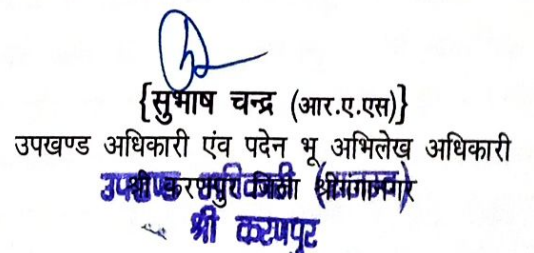 {सुभाष चन्द्र (आर.ए.एस)}
उपखण्ड अधिकारी एंव पदेन भू अभिलेख अधिकारी
श्री करणपुर जिला श्रीगंगानगर
उपखण्ड अधिकारी
श्री करणपुर